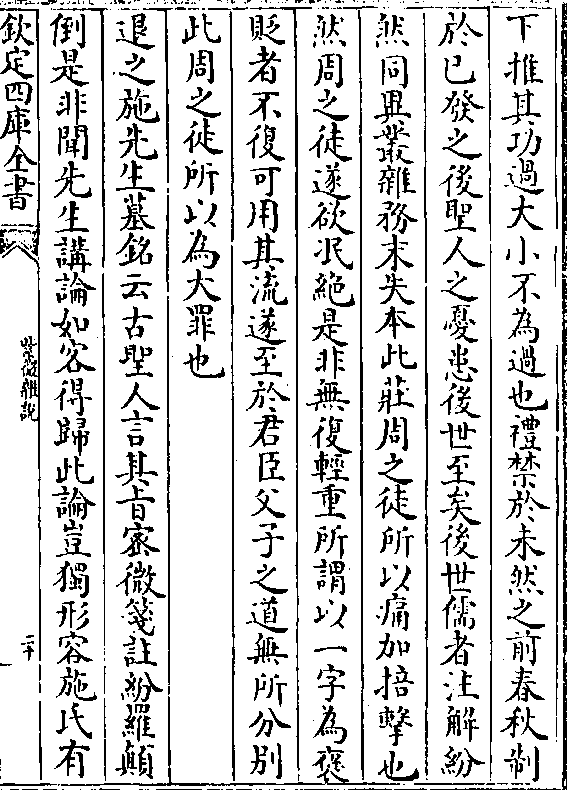 下推其功過大小不為過也禮禁於未然之前春秋制
於已發之後聖人之憂患後世至矣後世儒者注解紛
然同異叢雜務末失本此莊周之徒所以痛加掊擊也
然周之徒遂欲泯絶是非無復輕重所謂以一字為褒
貶者不復可用其流遂至於君臣父子之道無所分别
此周之徒所以為大罪也
退之施先生墓銘云古聖人言其旨宻微箋註紛羅顛
倒是非聞先生講論如客得歸此論豈獨形容施氏有
欽定四庫全書
紫微雜説
二十